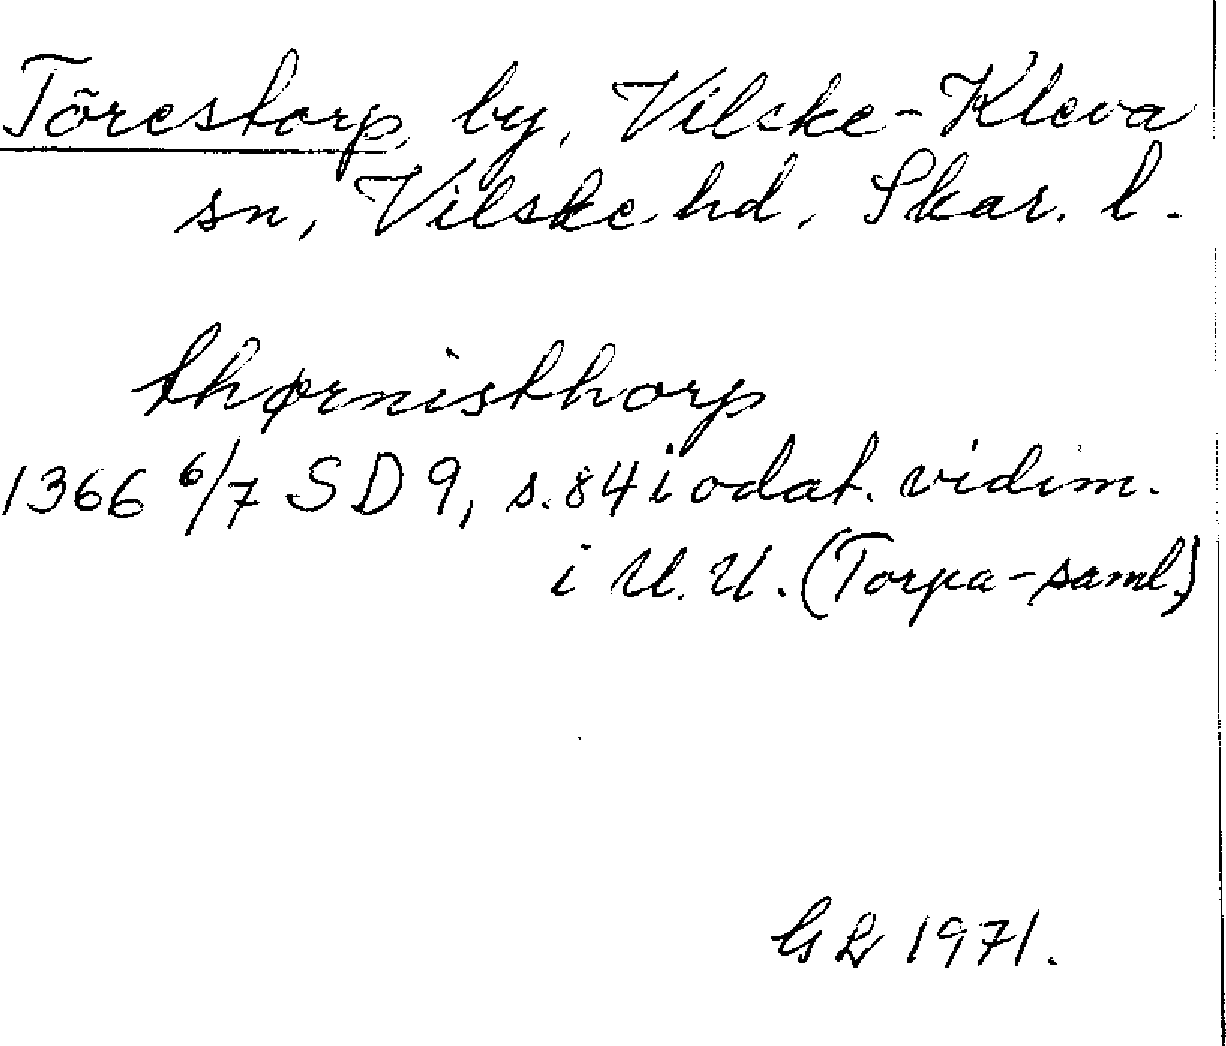 Törestorp, by, Vilske-Kleva
sn, Vilske hd, Skar. l.
thørnisthorp
1366 6/7 SD 9, s. 84 i odat. vidim.
i U.U. (Torpa-saml.)
GL 1971.